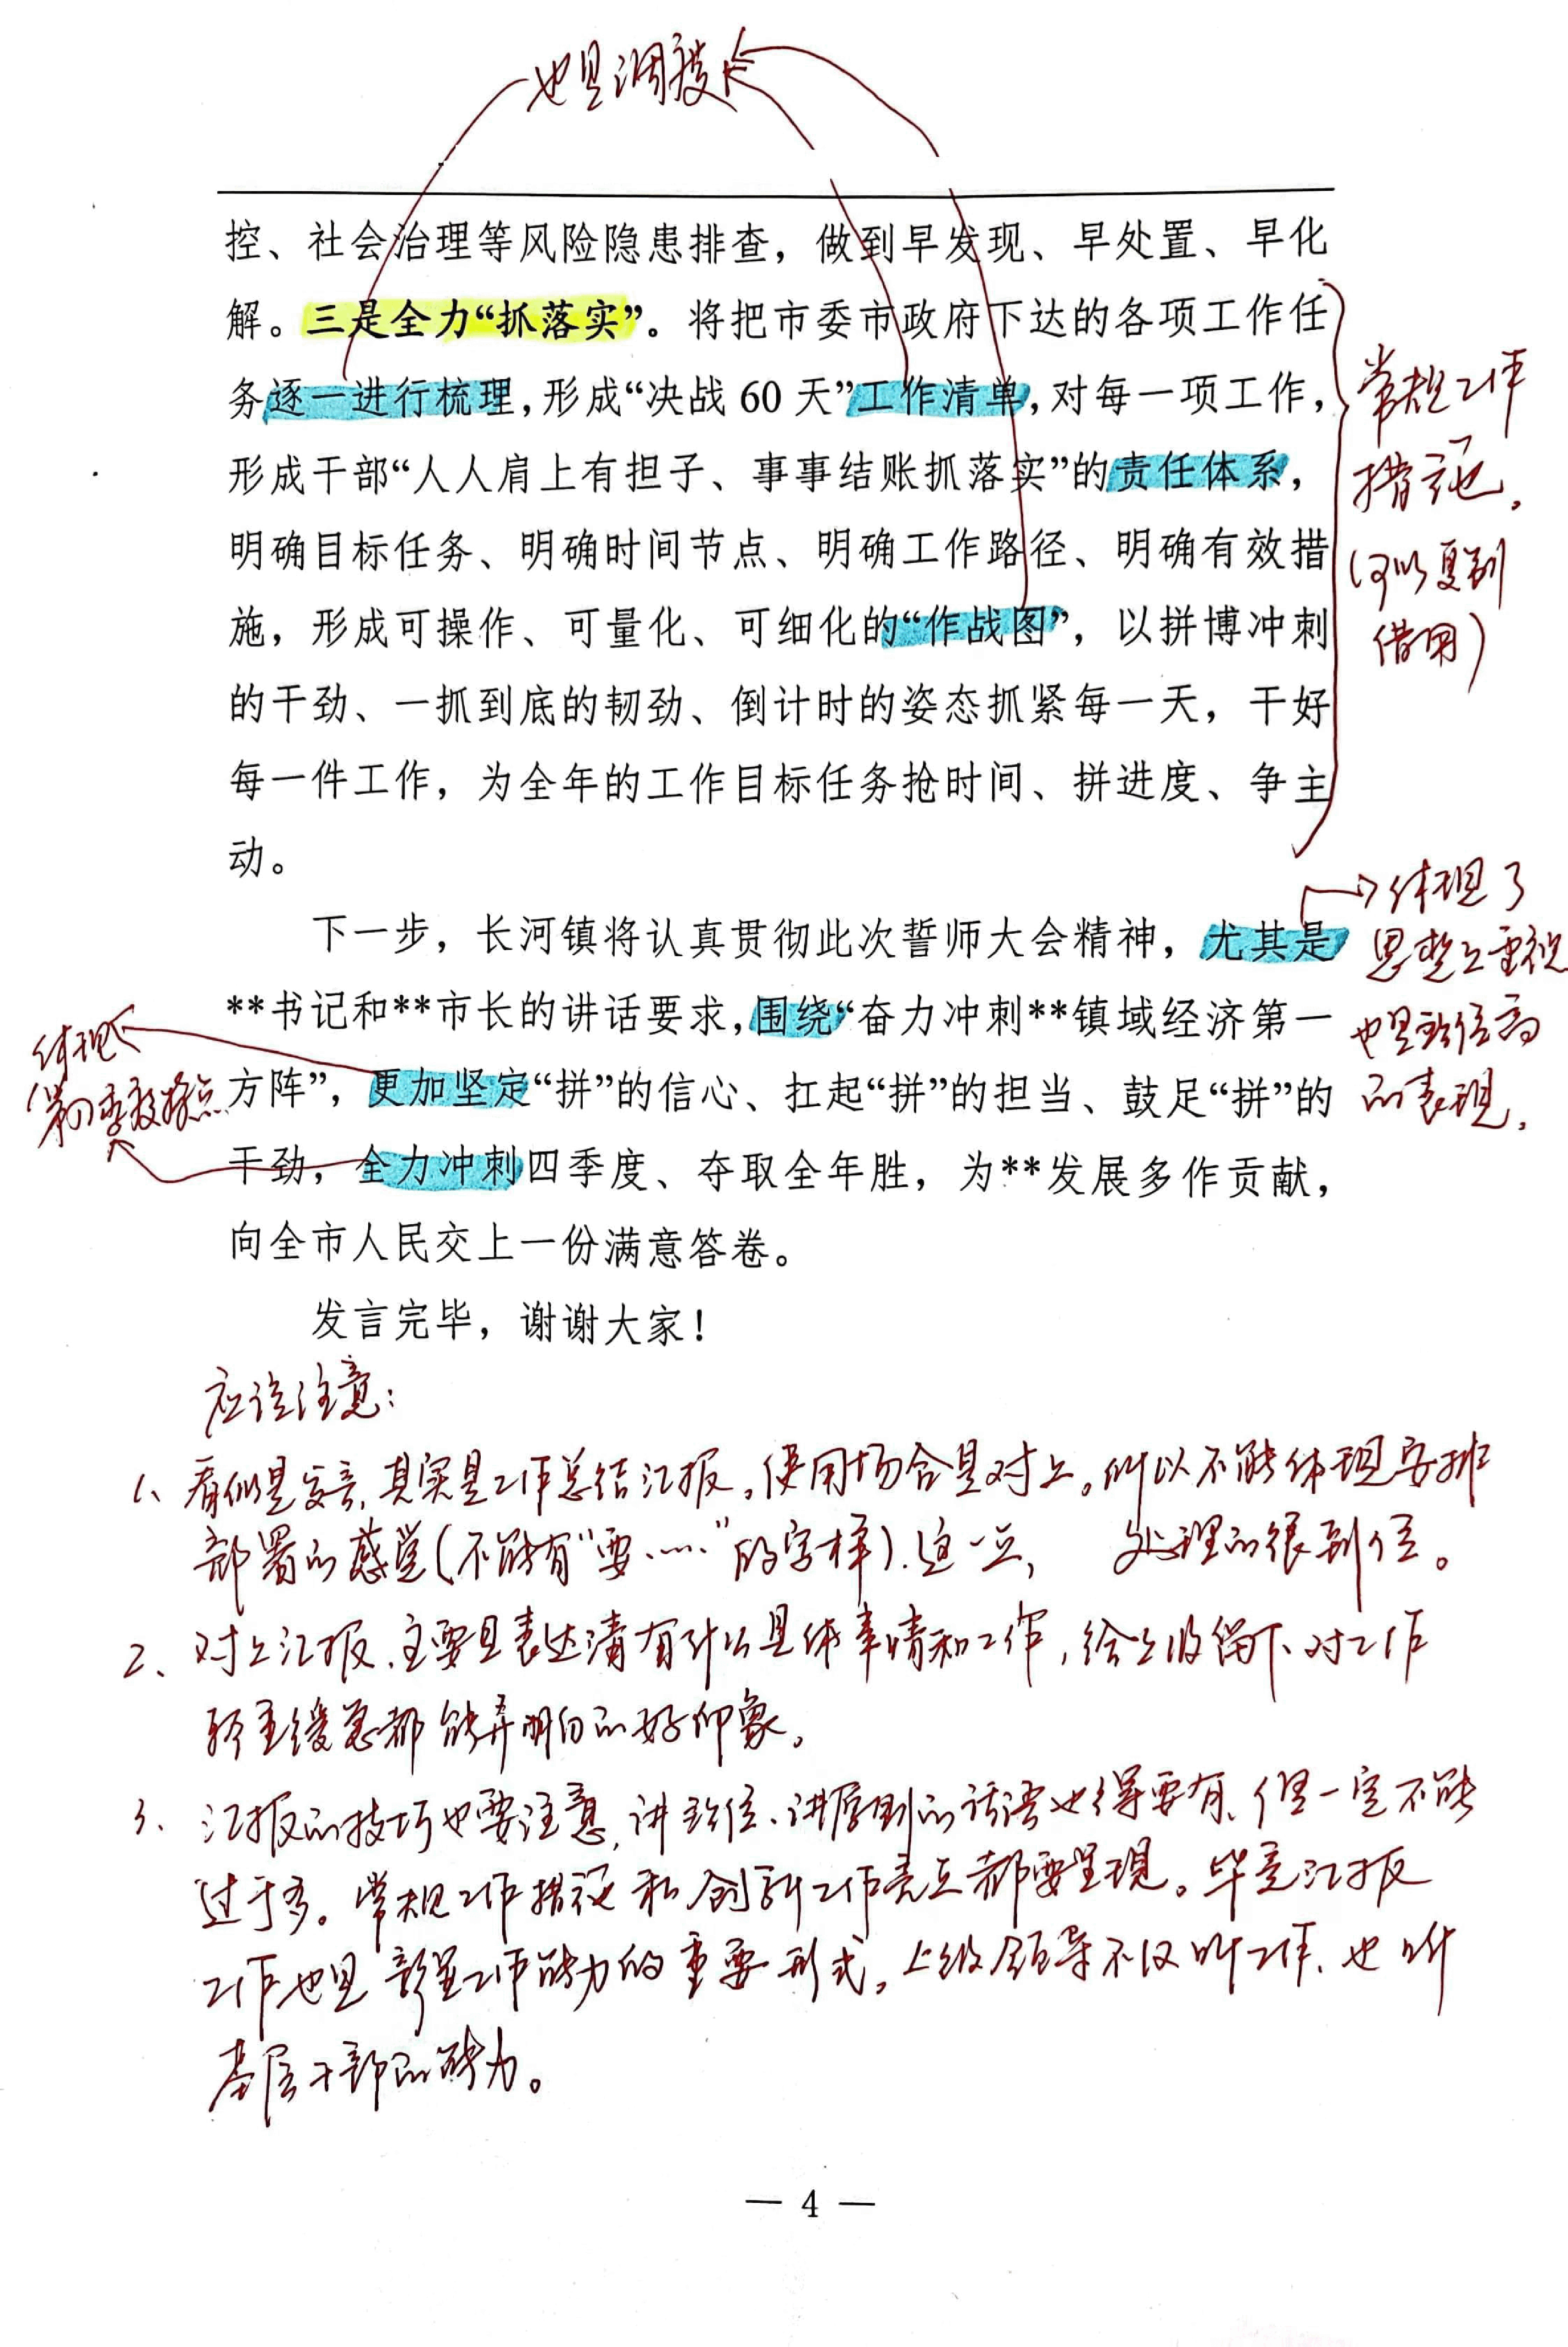 也是调度
控、社会治理等风险隐患排查，做到早发现、早处置、早化
解。三是全力“抓落实”。将把市委市政府下达的各项工作任
务逐一进行梳理，形成“决战 60 天”工作清单，对每一项工作，
形成干部“人人肩上有担子、事事结账抓落实”的责任体系，
明确目标任务、明确时间节点、明确工作路径、明确有效措
施，形成可操作、可量化、可细化的“作战图”，以拼博冲刺
的干劲、一抓到底的韧劲、倒计时的姿态抓紧每一天，干好
每一件工作，为全年的工作目标任务抢时间、拼进度、争主
动。
常规工作
措施，
(可以复制
借用)
下一步，长河镇将认真贯彻此次誓师大会精神，尤其是
**书记和**市长的讲话要求，围绕“奋力冲刺**镇域经济第一
方阵”，更加坚定“拼”的信心、扛起“拼”的担当、鼓足“拼”的
干劲，全力冲刺四季度、夺取全年胜，为**发展多作贡献，
向全市人民交上一份满意答卷。
发言完毕，谢谢大家！
体现了
思想上重视
也是站位高
的表现，
体现
第四季度特点
应该注意：
1、看似是发言，其实是工作总结汇报。使用场合是对上。所以不能体现安排
部署的感觉(不能有“要……”的字样)．这一点， 处理的很到位。
2、对上汇报，主要是表达清有什么具体事情和工作，给上级留下对工作
轻重缓急都能弄明白的好印象。
3、汇报的技巧也要注意，讲站位、讲原则的话语也得要有，但一定不能
过于多。常规工作措施和创新工作亮点都要呈现。毕竟汇报
工作也是彰显工作能力的重要形式。上级领导不仅听工作、也听
基层干部的能力。
— 4 —